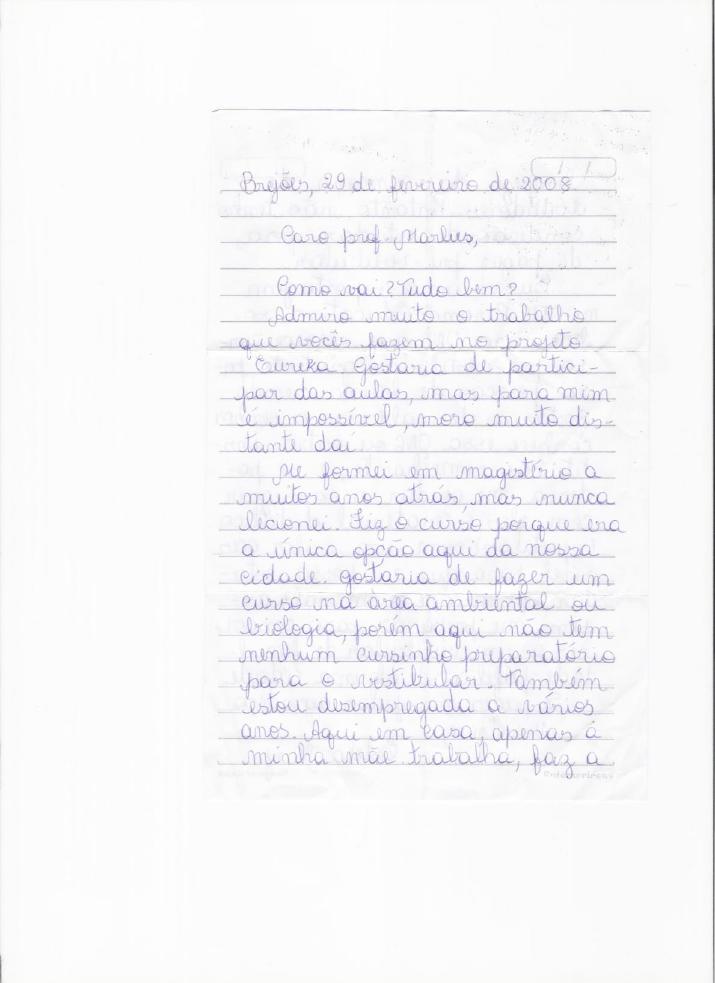 Brejões, 29 de fevereiro de 2008
Caro prof. Marlus,
Como vai? Tudo bem?
Admiro muito o trabalho
que vocês fazem no projeto
Eureka. Gostaria de partici-
par das aulas, mas para mim
é impossível, moro muito dis-
tante daí.
Me formei em magistério a
muitos anos atrás, mas nunca
lecionei. Fiz o curso porque era
a única opção aqui da nossa
cidade. Gostaria de fazer um
curso na área ambiental ou
biologia, porém aqui não tem
nenhum cursinho preparatório
para o vestibular. Também
estou desempregada a vários
anos. Aqui em casa, apenas á
minha mãe trabalha, faz a